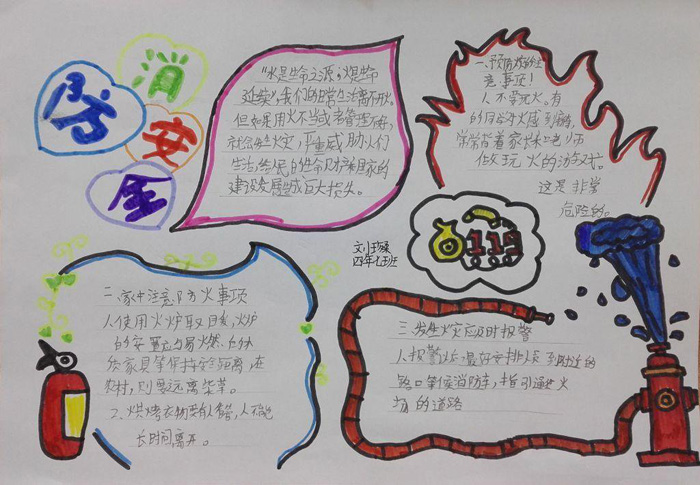 消
防
安
全
"水是生命之源,火是生命
延续",我们的日常生活离不开火。
但如果用火不当或者管理不善,
就会发生火灾,严重威胁人们
生活,给人民的生命财产和国家的
建设发展造成巨大损失。
一、预防火灾的注
意事项!
1、不要玩火。有
的同学对火感到新鲜,
常常背着家长和老师
做玩火的游戏。
这是非常
危险的。
119
四年七班
二、家中注意防火事项
1、使用火炉取暖,火炉
的安置应与易燃的木
质家具等保持安全距离,在
农村,则要远离柴草。
2、烘烤衣物要有人看管,人不能
长时间离开。
三、发生火灾应及时报警
1、报警后最好安排人员到附近的
路口等候消防车,指引通往火
场的道路